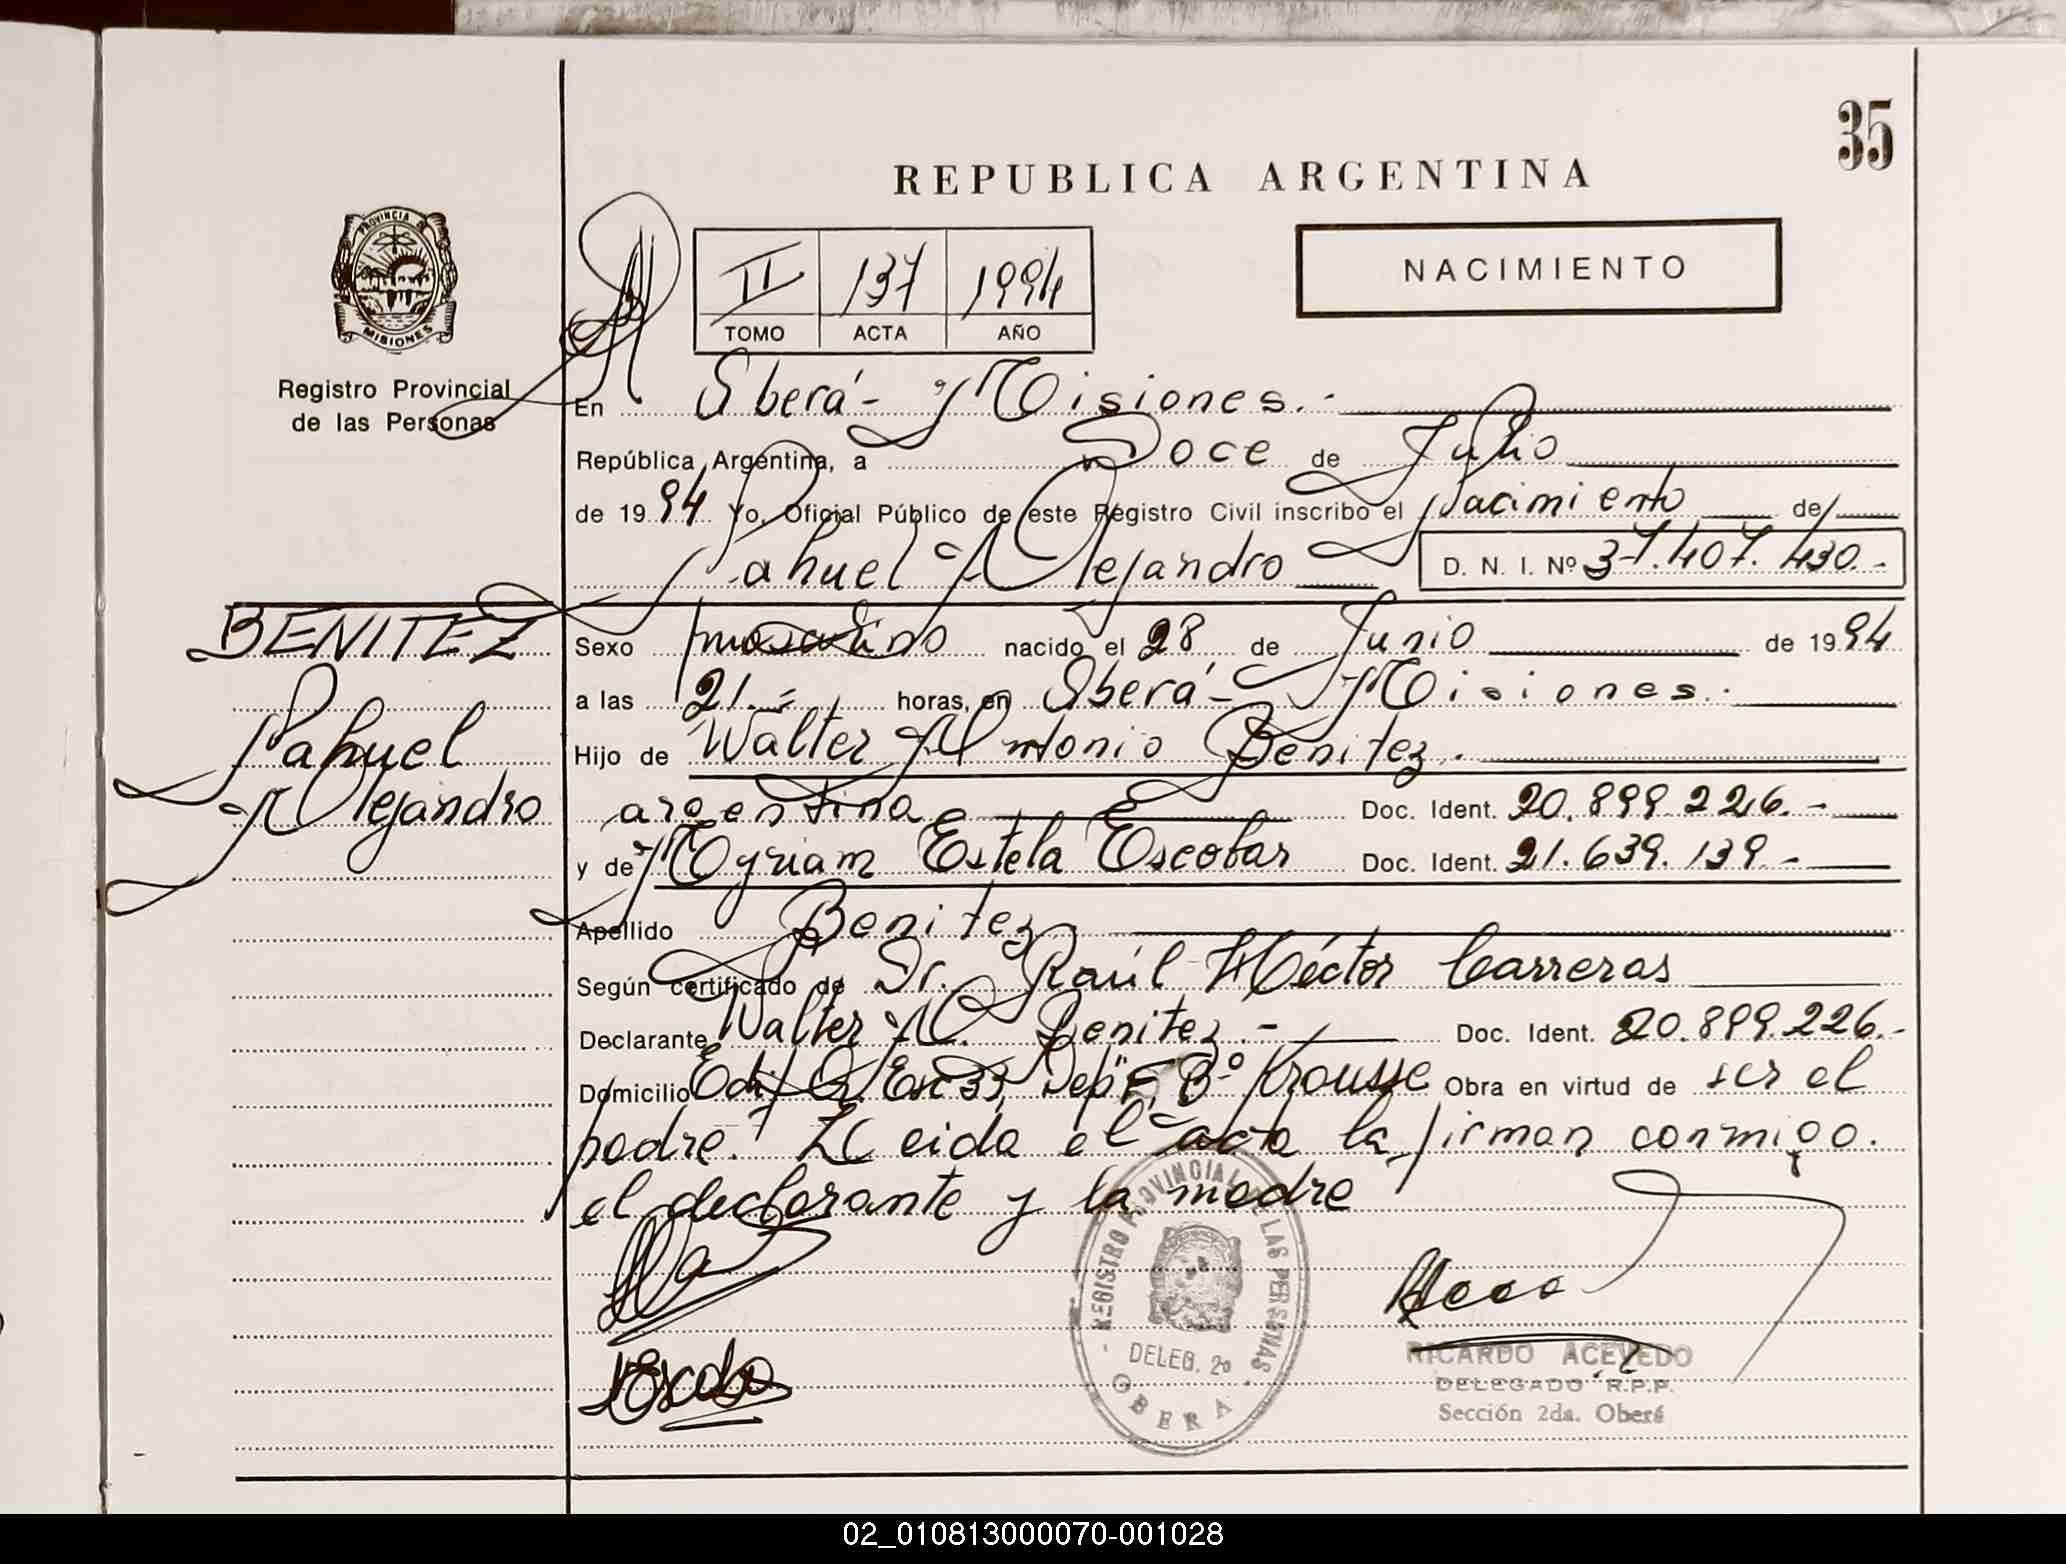 35
REPUBLICA ARGENTINA
PROVINCIA DE
MISIONES
Registro Provincial
de las Personas
II 137 1994
TOMO ACTA AÑO
NACIMIENTO
En Oberá - Misiones.-
República Argentina, a Doce de Julio
de 1994 Yo, Oficial Público de este Registro Civil inscribo el Nacimiento de
Nahuel Alejandro D. N. I. Nº 37.407.430.-
BENITEZ
Nahuel
Alejandro
Sexo masculino nacido el 28 de Junio de 1994
a las 21.- horas, en Oberá - Misiones.
Hijo de Walter Antonio Benitez.
argentina Doc. Ident. 20.899.226.-
y de Myriam Estela Escobar Doc. Ident. 21.639.139-
Apellido Benitez.
Según certificado de Dr. Raúl Héctor Carreras
Declarante Walter A. Benitez.- Doc. Ident. 20.899.226.-
Domicilio Edif. Esc 33, Bº Krousse Obra en virtud de ser el
padre. Leida el acta la firman conmigo.
el declarante y la madre
REGISTRO PROVINCIAL DE LAS PERSONAS
DELEG. 2º
OBERA
Escoba
RICARDO ACEVEDO
DELEGADO R.P.P.
Sección 2da. Oberá
02_010813000070-001028